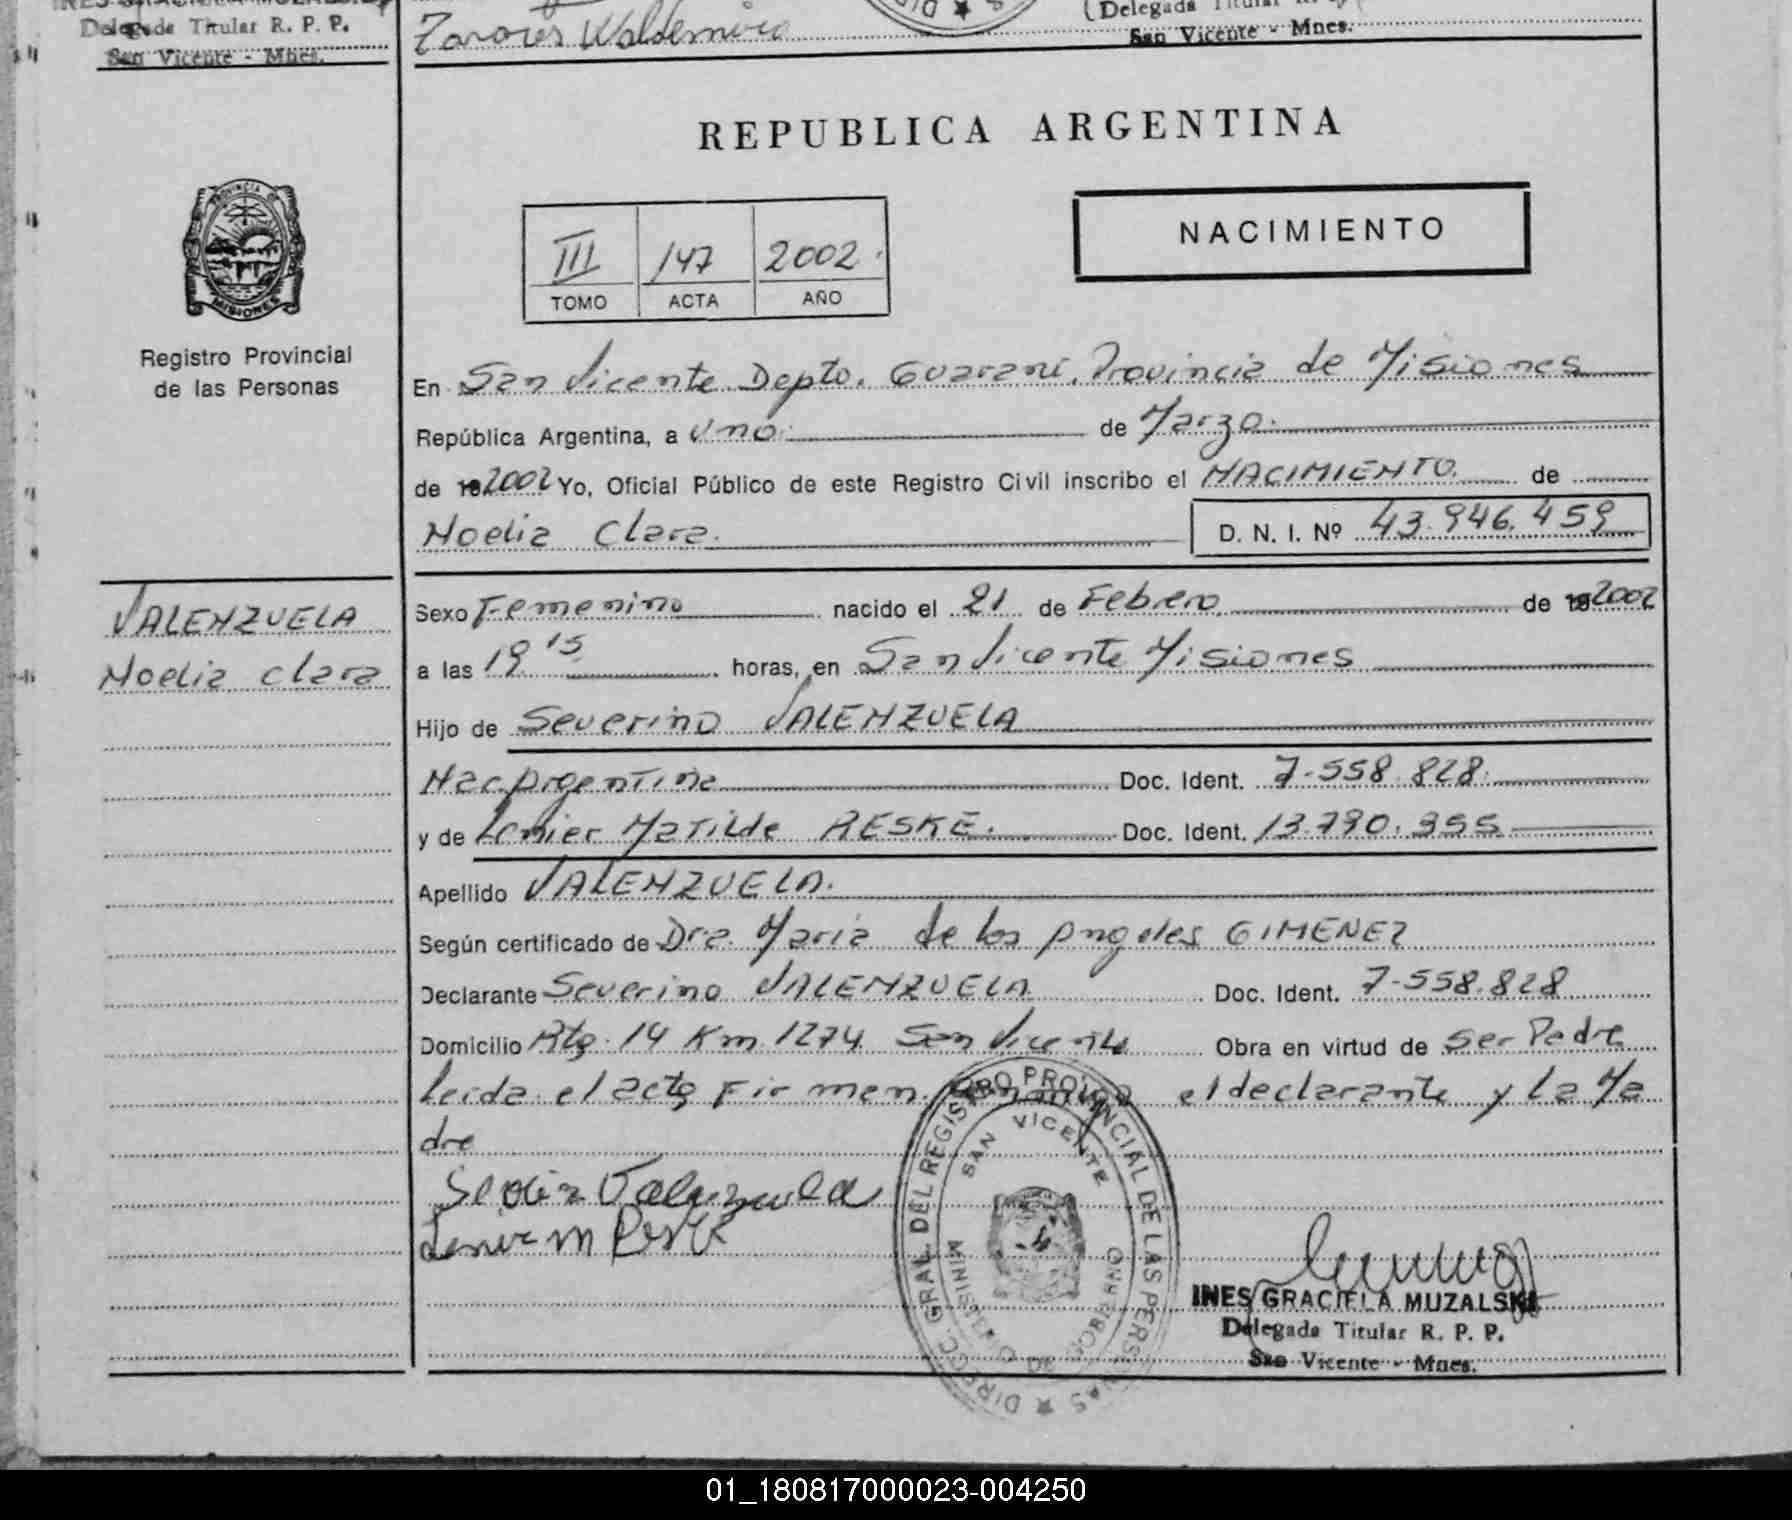 Delegada Titular R. P. P.
San Vicente - Mnes.
Tavares Waldemiro
Delegada Titular
San Vicente - Mnes.
REPUBLICA ARGENTINA
PROVINCIA DE
MISIONES
III 147 2002.
TOMO ACTA AÑO
NACIMIENTO
Registro Provincial
de las Personas
En San Vicente Depto. Guaraní, Provincia de Misiones
República Argentina, a uno. de Marzo.
de 192002 Yo, Oficial Público de este Registro Civil inscribo el NACIMIENTO. de
Noelia Clara. D. N. I. Nº 43.946.459
VALENZUELA
Noelia Clara
Sexo Femenino nacido el 21 de Febrero de 192002
a las 19 15 horas, en San Vicente Misiones
Hijo de Severino VALENZUELA
Nac. Argentina Doc. Ident. 7.558.828.
y de Matilde RESKE. Doc. Ident. 13.790.355
Apellido VALENZUELA.
Según certificado de Dra. Maria de los Angeles GIMENEZ
Declarante Severino VALENZUELA Doc. Ident. 7.558.828
Domicilio Rta. 14 Km 1274 San Vicente Obra en virtud de Ser Padre
leida el acta Firman conmigo el declarante y la Ma
dre
Valenzuela
DIRECC. GRAL. DEL REGISTRO PROVINCIAL DE LAS PERSONAS
SAN VICENTE
MINISTERIO DE GOBIERNO
INES GRACIELA MUZALSKI
Delegada Titular R. P. P.
San Vicente - Mnes.
01_180817000023-004250